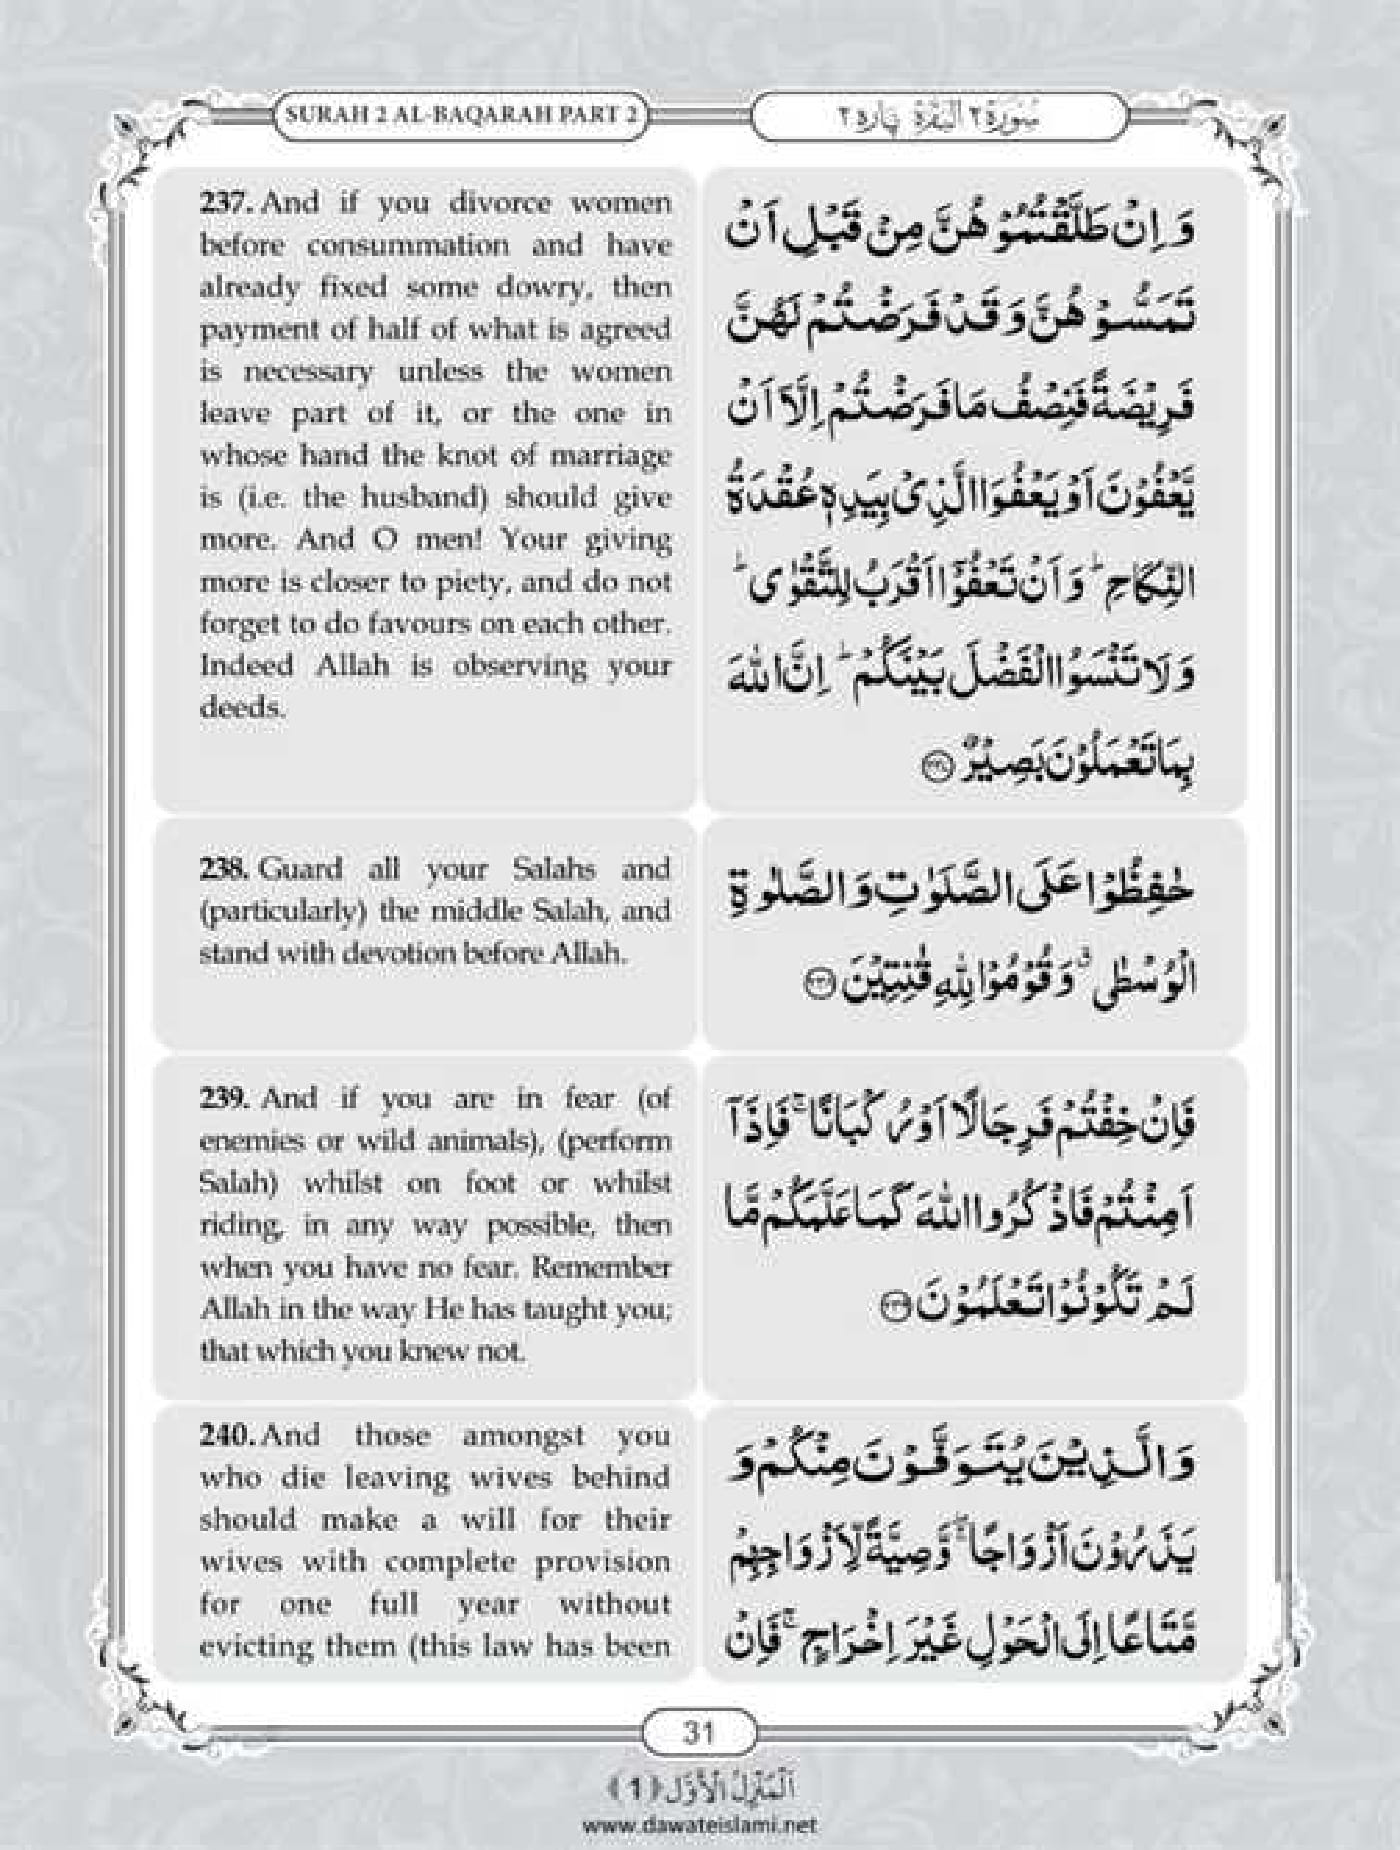 SURAH 2 AL-BAQARAH PART 2
سُوْرَةُ ٢ الْبَقَرَة پاره ٢
237. And if you divorce women
before consummation and have
already fixed some dowry, then
payment of half of what is agreed
is necessary unless the women
leave part of it, or the one in
whose hand the knot of marriage
is (i.e. the husband) should give
more. And O men! Your giving
more is closer to piety, and do not
forget to do favours on each other.
Indeed Allah is observing your
deeds.
وَ اِنْ طَلَّقْتُمُوْهُنَّ مِنْ قَبْلِ اَنْ
تَمَسُّوْهُنَّ وَ قَدْ فَرَضْتُمْ لَهُنَّ
فَرِیْضَةً فَنِصْفُ مَا فَرَضْتُمْ اِلَّاۤ اَنْ
یَّعْفُوْنَ اَوْ یَعْفُوَا الَّذِیْ بِیَدِهٖ عُقْدَةُ
النِّكَاحِ ؕ وَ اَنْ تَعْفُوْۤا اَقْرَبُ لِلتَّقْوٰى ؕ
وَ لَا تَنْسَوُا الْفَضْلَ بَیْنَكُمْ ؕ اِنَّ اللّٰهَ
بِمَا تَعْمَلُوْنَ بَصِیْرٌ ﴿۲۳۷﴾
238. Guard all your Salahs and
(particularly) the middle Salah, and
stand with devotion before Allah.
حٰفِظُوْا عَلَى الصَّلَوٰتِ وَ الصَّلٰوةِ
الْوُسْطٰى ۗ وَ قُوْمُوْا لِلّٰهِ قٰنِتِیْنَ ﴿۲۳۸﴾
239. And if you are in fear (of
enemies or wild animals), (perform
Salah) whilst on foot or whilst
riding, in any way possible, then
when you have no fear. Remember
Allah in the way He has taught you;
that which you knew not.
فَاِنْ خِفْتُمْ فَرِجَالًا اَوْ رُكْبَانًا ۚ فَاِذَاۤ
اَمِنْتُمْ فَاذْكُرُوا اللّٰهَ كَمَا عَلَّمَكُمْ مَّا
لَمْ تَكُوْنُوْا تَعْلَمُوْنَ ﴿۲۳۹﴾
240. And those amongst you
who die leaving wives behind
should make a will for their
wives with complete provision
for one full year without
evicting them (this law has been
وَ الَّذِیْنَ یُتَوَفَّوْنَ مِنْكُمْ وَ
یَذَرُوْنَ اَزْوَاجًا ۚۖ وَّصِیَّةً لِّاَزْوَاجِهِمْ
مَّتَاعًا اِلَى الْحَوْلِ غَیْرَ اِخْرَاجٍ ۚ فَاِنْ
31
اَلْمَنْزِلُ الْاَوَّل (1)
www.dawateislami.net